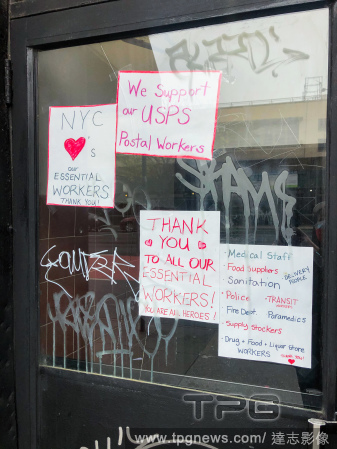 NYC
♥'s
our
ESSENTIAL
WORKERS
THANK YOU!
We Support
our USPS
Postal Workers
THANK
YOU
TO ALL OUR
ESSENTIAL
WORKERS!
YOU ARE ALL HEROES!
· Medical Staff
Food Suppliers
· Sanitation
DELIVERY
PEOPLE
· Police
· TRANSIT
Fire Dept
Paramedics
Supply Stockers
· Drug + Food + Liquor Store
WORKERS
THANK YOU
TPG
www.tpgnews.com/ 達志影像